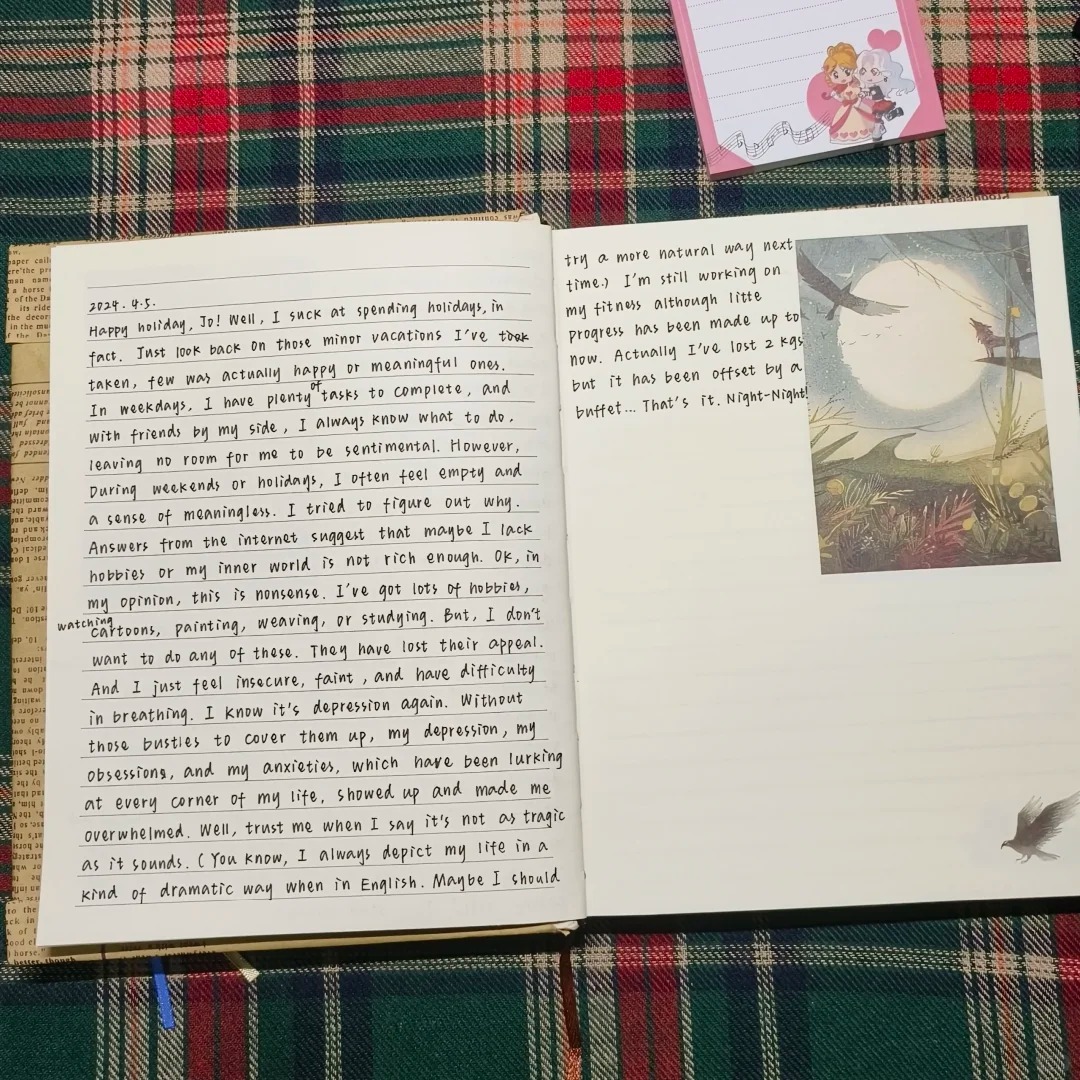 2024.4.5.
Happy holiday, Jo! Well, I suck at spending holidays, in
fact. Just look back on those minor vacations I've took
taken, few was actually happy or meaningful ones.
In weekdays, I have plenty of tasks to complete, and
with friends by my side, I always know what to do,
leaving no room for me to be sentimental. However,
During weekends or holidays, I often feel empty and
a sense of meaningless. I tried to figure out why.
Answers from the internet suggest that maybe I lack
hobbies or my inner world is not rich enough. OK, in
my opinion, this is nonsense. I've got lots of hobbies,
watching cartoons, painting, weaving, or studying. But, I don't
want to do any of these. They have lost their appeal.
And I just feel insecure, faint, and have difficulty
in breathing. I know it's depression again. Without
those busties to cover them up, my depression, my
obsessions, and my anxieties, which have been lurking
at every corner of my life, showed up and made me
overwhelmed. Well, trust me when I say it's not as tragic
as it sounds. (You know, I always depict my life in a
kind of dramatic way when in English. Maybe I should
try a more natural way next
time.) I'm still working on
my fitness although litte
progress has been made up to
now. Actually I've lost 2 kgs
but it has been offset by a
buffet... That's it. Night-Night!